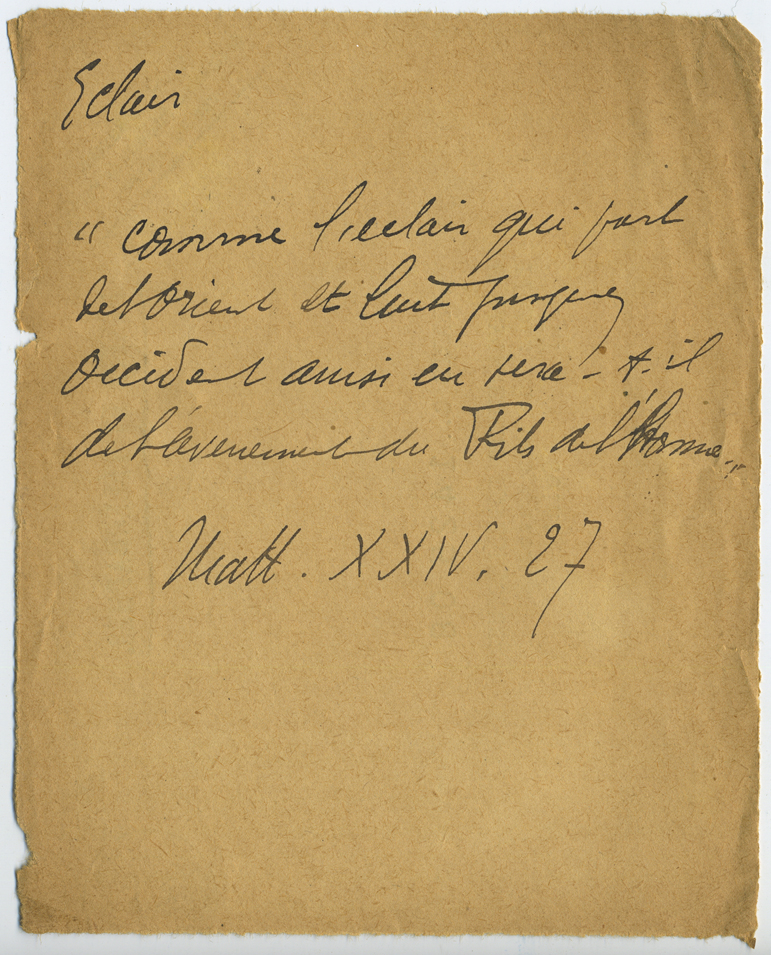 Eclair
" comme l'eclair qui part
de l'Orient et luit jusques
Occident ainsi en sera-t-il
de l'avenement du Fils de l'homme."
Matt. XXIV. 27